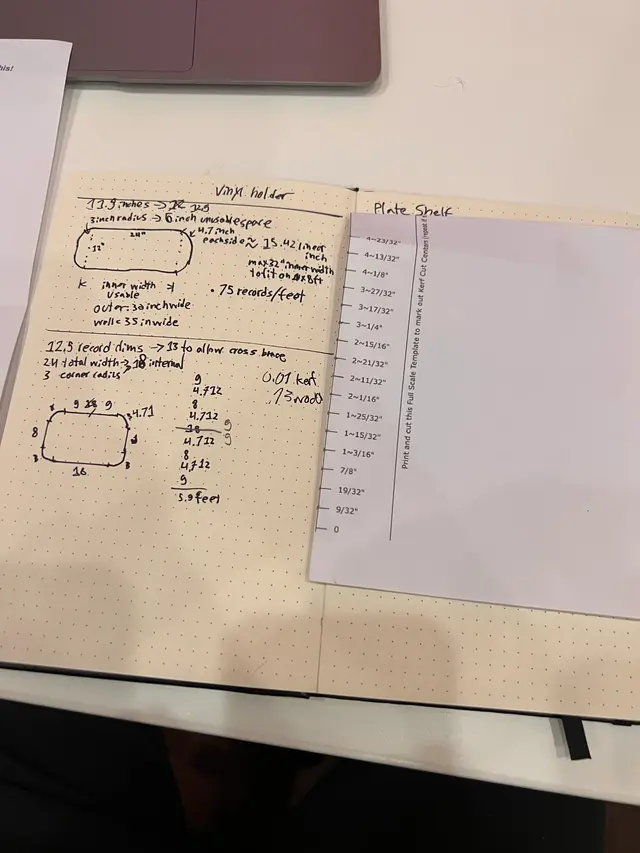 his!
Vinyl holder
11.9 inches → 12 12.9
3 inch radius → 6 inch unusable space
24"
12"
4.7 inch
each side ≈ 15.42 linear
inch
max 32" inner width
to fit on 4x8ft
inner width
usable
outer: 30 inch wide
wall = 35 in wide
• 75 records/feet
12.5 record dims → 13 to allow cross brace
24 total width → 18 internal
3 corner radius
9
4.712
8
4.712
18 9
4.712 9
8
4.712
9
5.9 feet
0.01 kerf
.73 wood
9 9
4.71
8
3
3
16
Plate Shelf
4~23/32"
4~13/32"
4~1/8"
3~27/32"
3~17/32"
3~1/4"
2~15/16"
2~21/32"
2~11/32"
2~1/16"
1~25/32"
1~15/32"
1~3/16"
7/8"
19/32"
9/32"
0
Print and cut this Full Scale Template to mark out Kerf Cut Centers